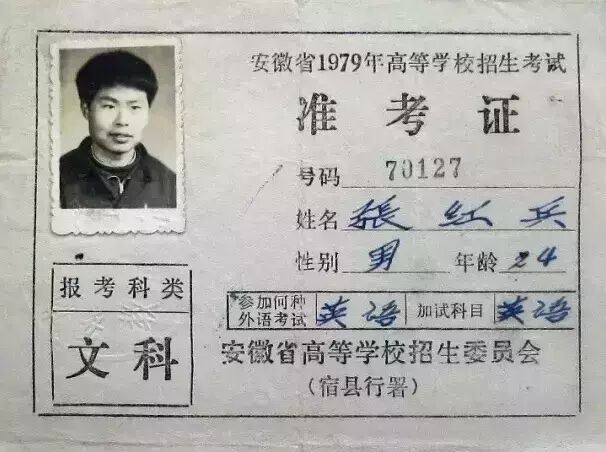 安徽省1979年高等学校招生考试
准考证
号码 70127
姓名 張红兵
性别 男 年龄 24
参加何种外语考试 英语 加试科目 英语
报考科类
文科
安徽省高等学校招生委员会
(宿县行署)